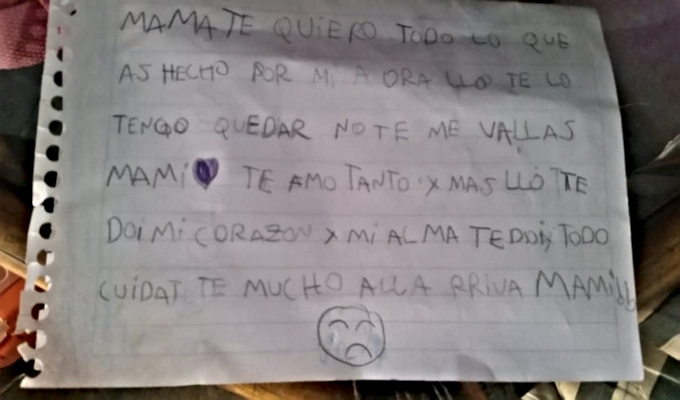 MAMA TE QUIERO TODO LO QUE
AS HECHO POR MI A ORA LLO TE LO
TENGO QUEDAR NO TE ME VALLAS
MAMi TE AMO TANTO X MAS LLO TTE
DOI Mi CORAZON X Mi ALMA TE DOI TODO
CUiDAT TE MUCHO ALLA RRIVA MAMi